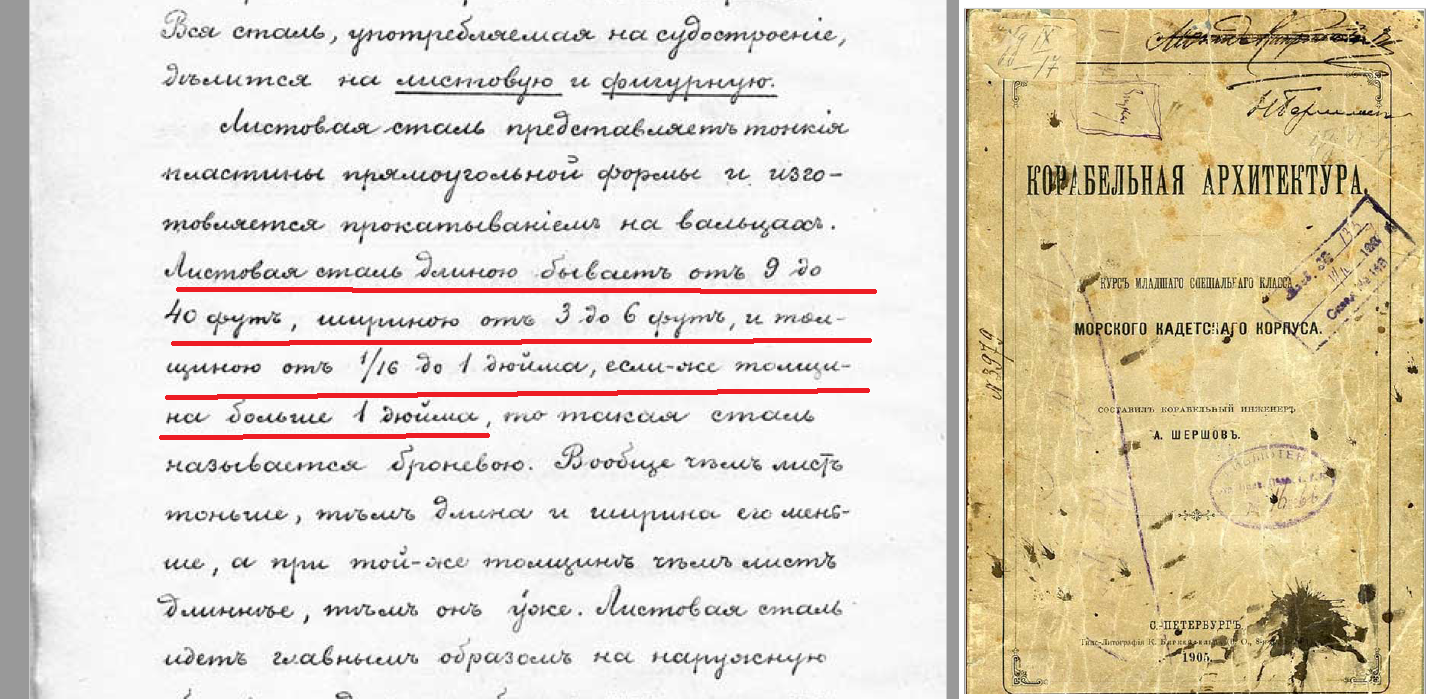 Вся сталь, употребляемая на судостроеніе,
дѣлится на листовую и фигурную.
Листовая сталь представляетъ тонкія
пластины прямоугольной формы и изго-
товляется прокатываніемъ на вальцахъ.
Листовая сталь длиною бываетъ отъ 9 до
40 футъ, шириною отъ 3 до 6 футъ, и тол-
щиною отъ 1/16 до 1 дюйма, если-же толщи-
на больше 1 дюйма, то такая сталь
называется броневою. Вообще чѣмъ листъ
тоньше, тѣмъ длина и ширина его мень-
ше, а при той-же толщинѣ чѣмъ листъ
длиннѣе, тѣмъ онъ у́же. Листовая сталь
идетъ главнымъ образомъ на наружную
КОРАБЕЛЬНАЯ АРХИТЕКТУРА.
КУРСЪ МЛАДШАГО СПЕЦІАЛЬНАГО КЛАССА
МОРСКОГО КАДЕТСКАГО КОРПУСА.
N 3979
СОСТАВИЛЪ КОРАБЕЛЬНЫЙ ИНЖЕНЕРЪ
А. ШЕРШОВЪ.
С.-ПЕТЕРБУРГЪ.
Типо-Литографія К.
1905.